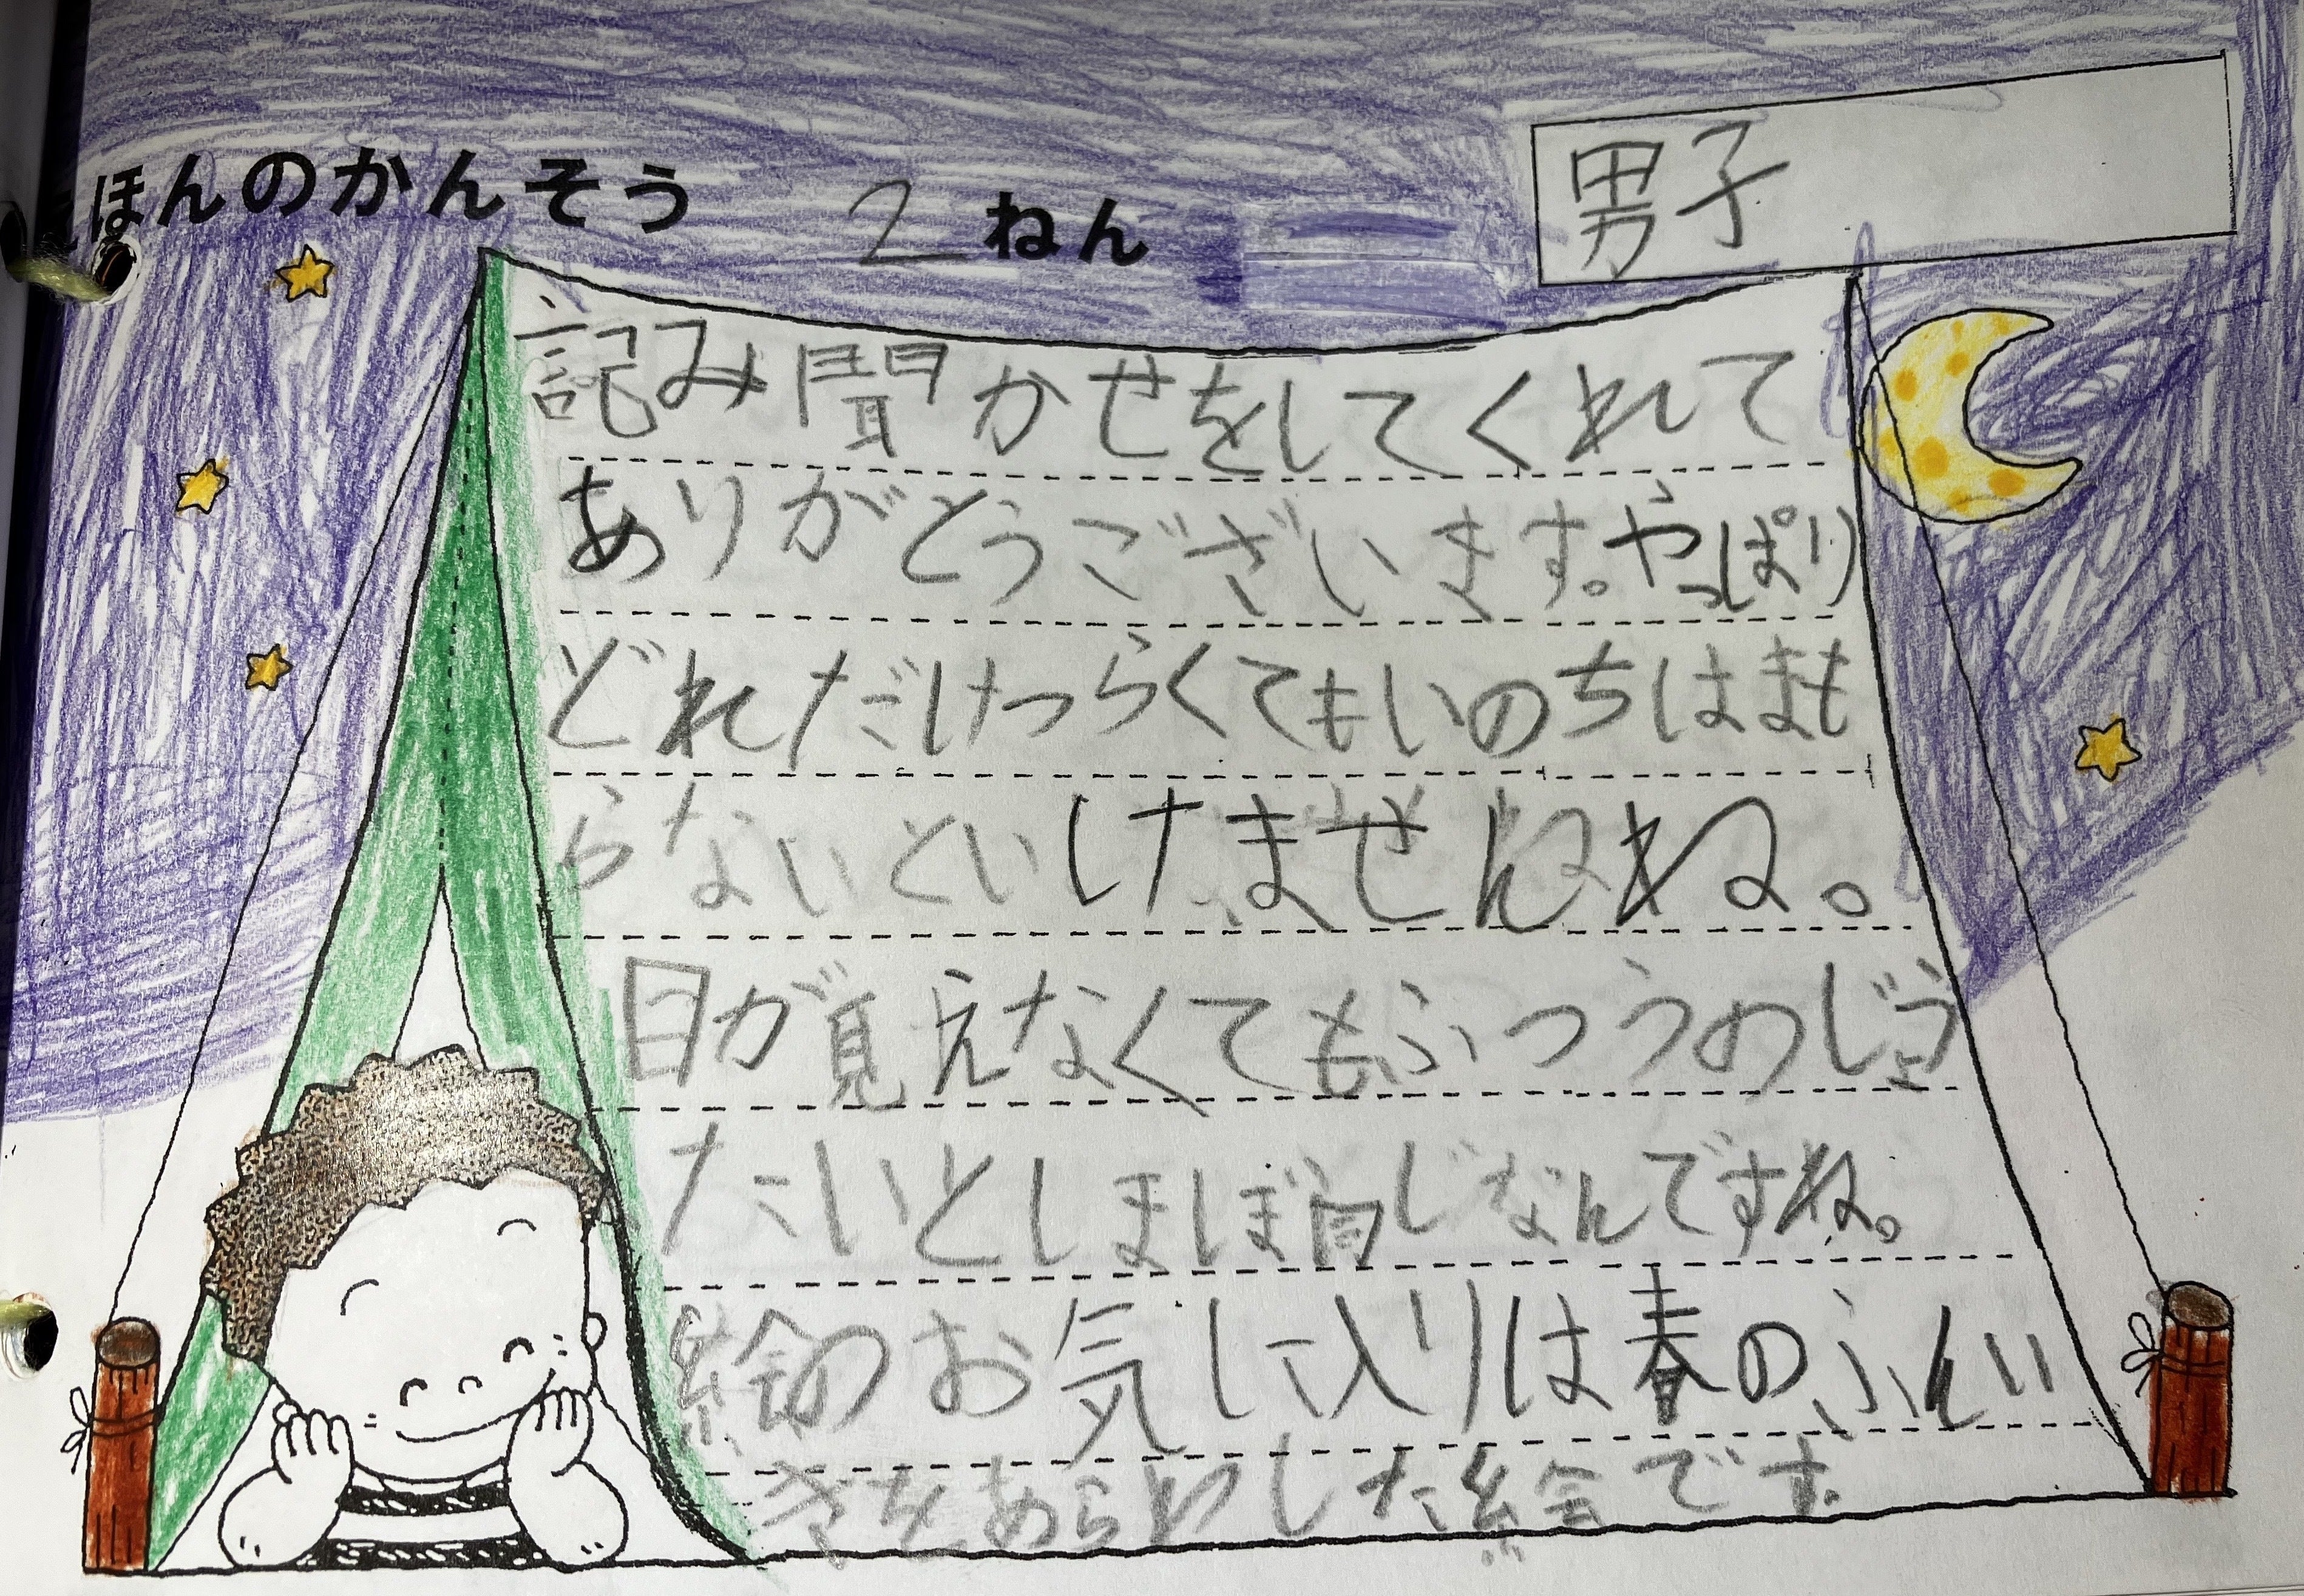 ほんのかんそう 2ねん 男子
記み聞かせをしてくれて
ありがとうございます。やっぱり
どれだけつらくてもいのちはまも
らないといけませんね。
目が見えなくてもふつうのじょう
たいとしまぼ同じなんですね。
絵のお気に入りは春のふんい
きをあらわした絵です